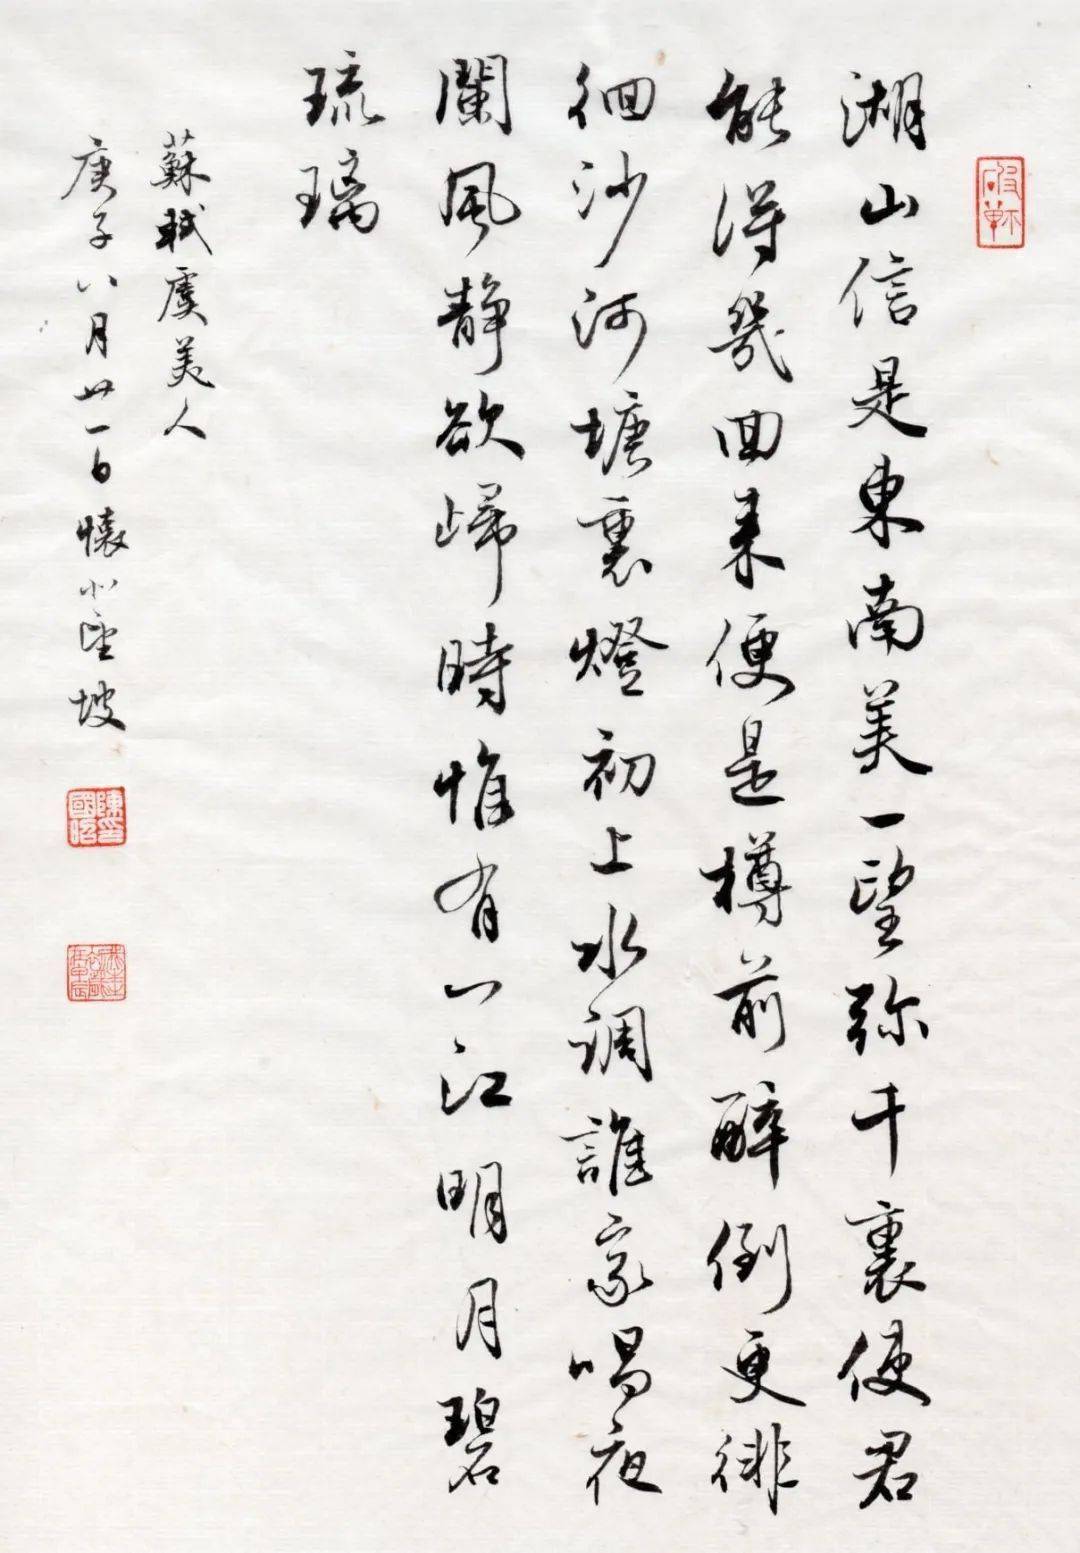 湖山信是東南美一望弥千裏使君
能得幾回来便是樽前醉倒更徘
徊沙河塘裏燈初上水调誰家唱夜
闌風靜欲歸時惟有一江明月碧
琉璃
蘇軾虞美人
庚子八月廿一日懷小坡
陳國昭印